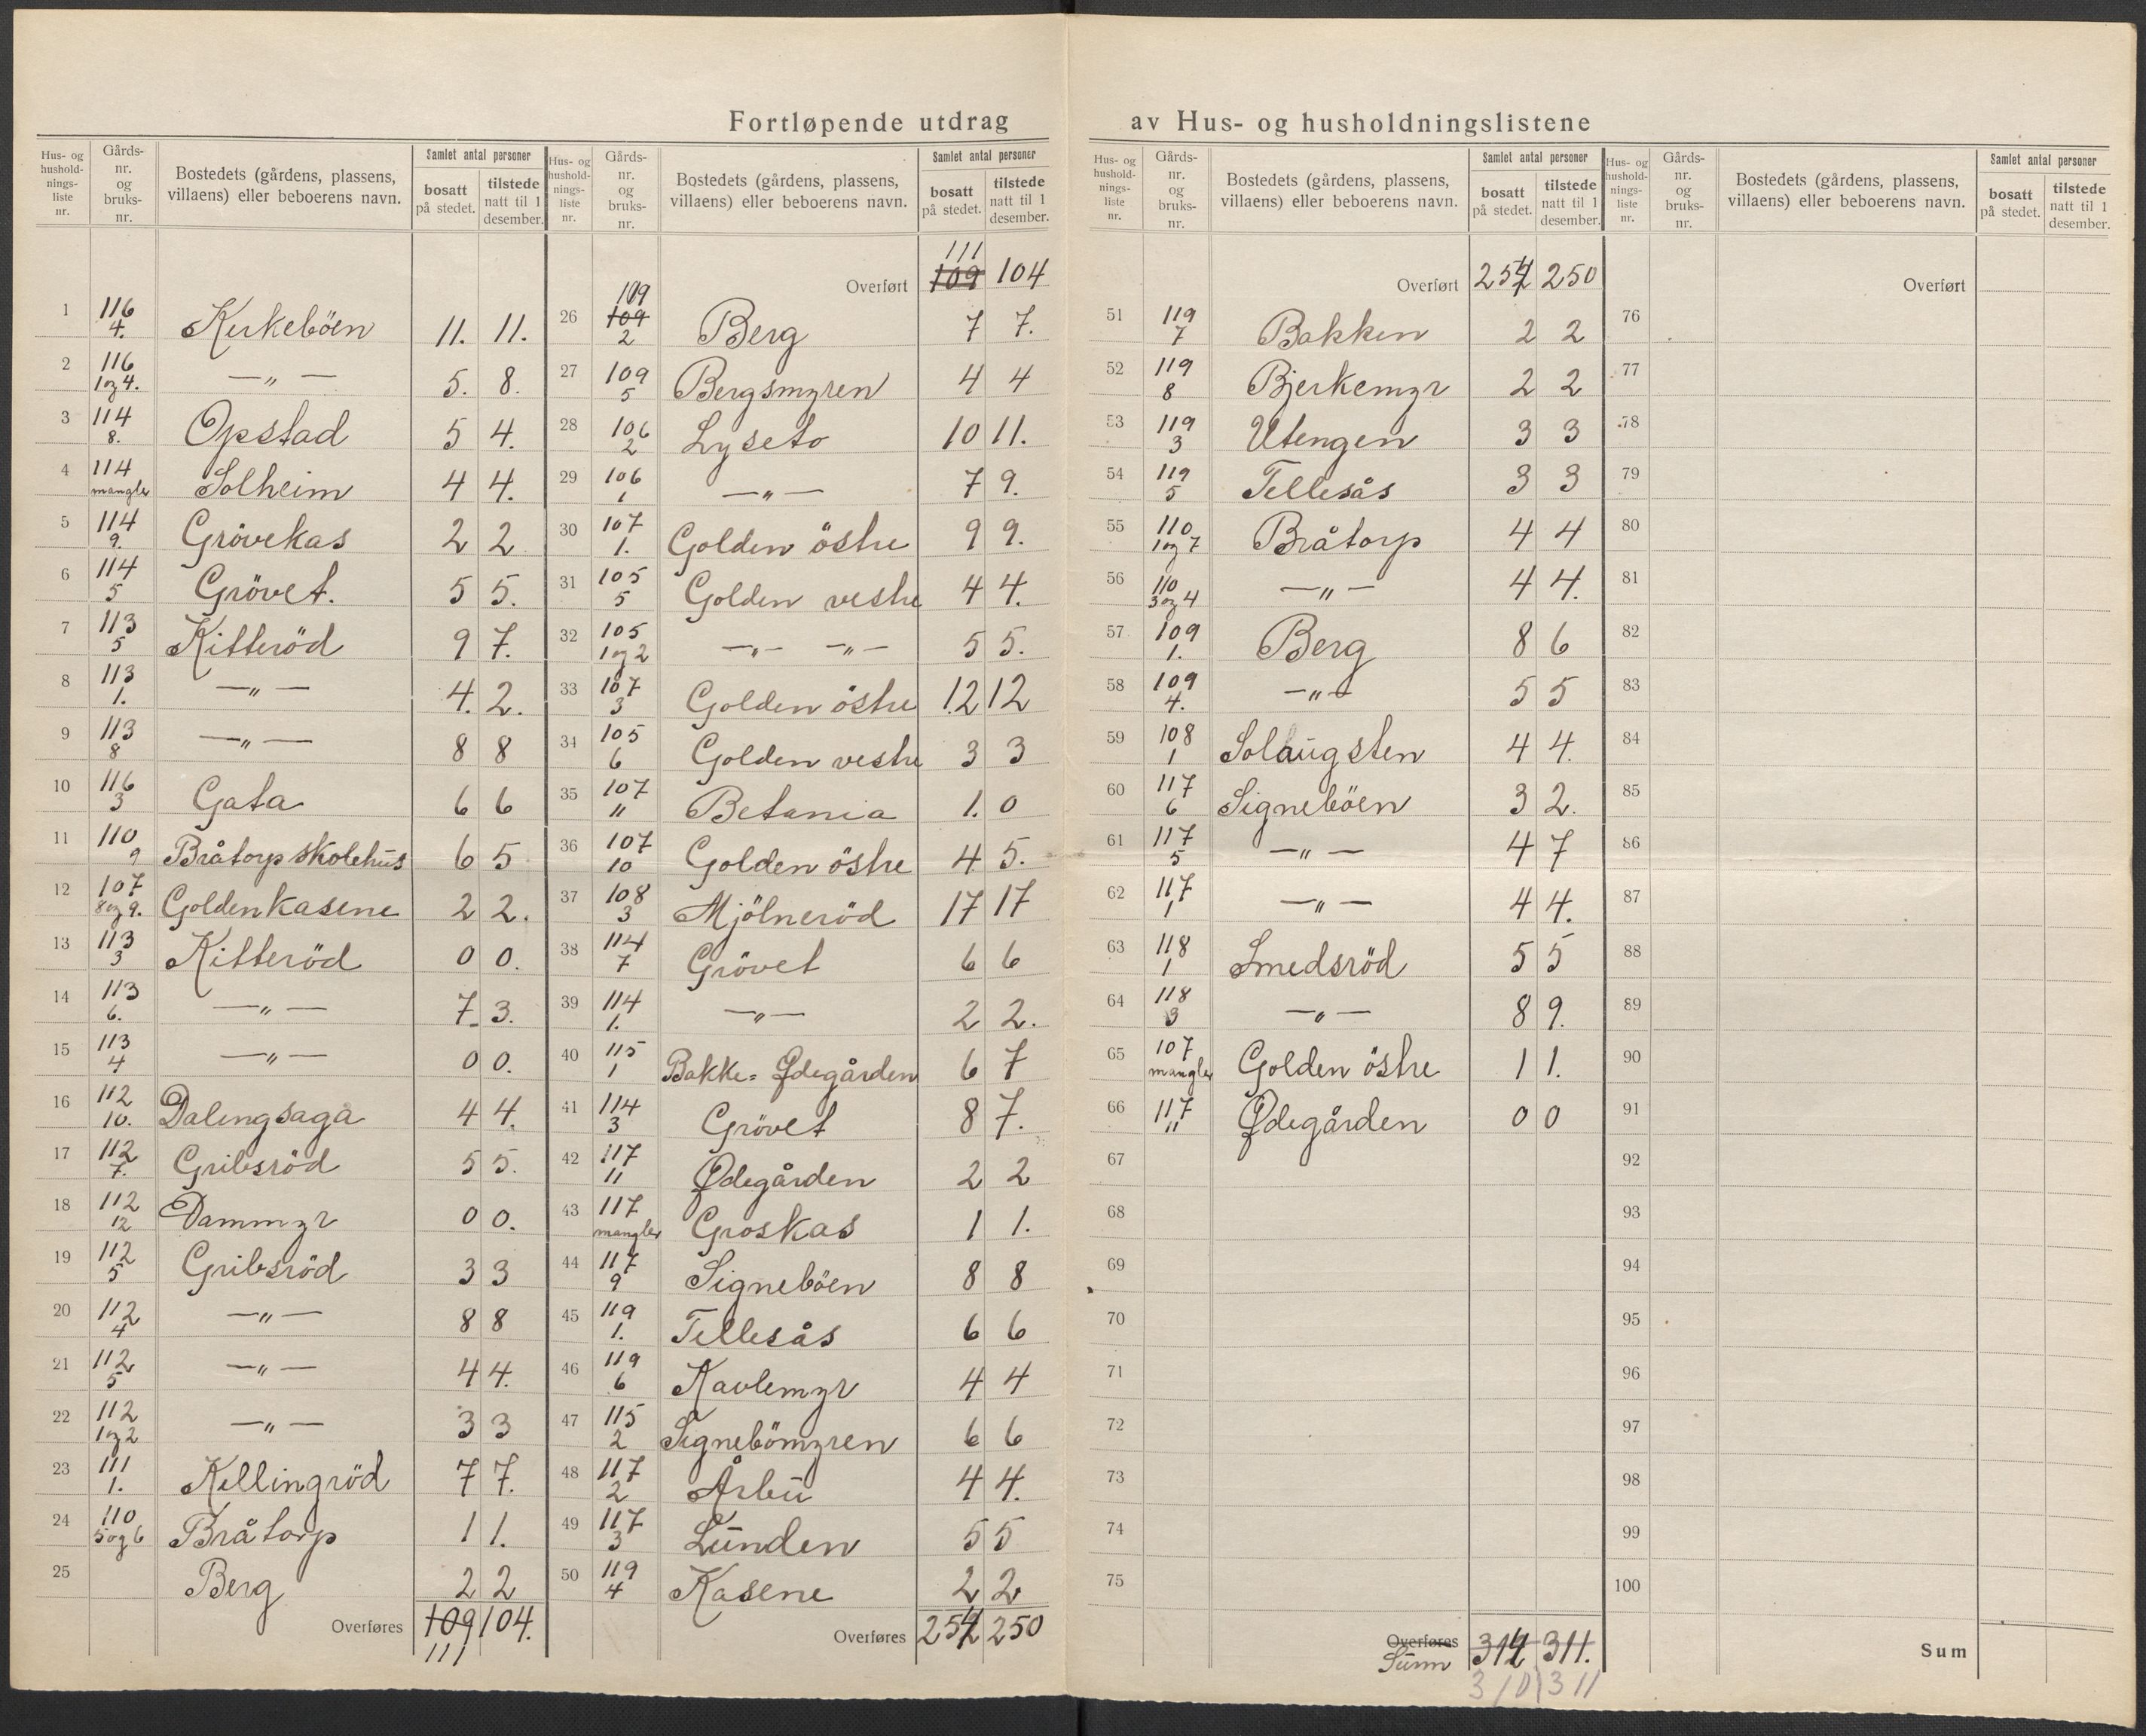 Fortløpende utdrag av Hus- og husholdningslistene
Hus- og hushold-nings-liste nr. | Gårds-nr. og bruks-nr. | Bostedets (gårdens, plassens, villaens) eller beboerens navn. | Samlet antal personer | bosatt på stedet. | tilstede natt til 1 desember.
1 116 4. Kirkeböen 11. 11.
2 116 1og4. —„— 5. 8.
3 114 8. Opstad 5 4.
4 114 mangler Solheim 4 4.
5 114 9. Grövekas 2 2
6 114 5 Grövet. 5 5.
7 113 5 Kitteröd 9 7.
8 113 1. —„— 4. 2.
9 113 8 —„— 8 8
10 116 3 Gata 6 6
11 110 9 Bråtorp skolehus 6 5
12 107 8og9. Goldenkasene 2 2.
13 113 3 Kitteröd 0 0.
14 113 6. —„— 7. 3.
15 113 4 —„— 0 0.
16 112 10. Dalengsaga 4 4.
17 112 7. Gribsröd 5 5.
18 112 12 Dammyr 0 0.
19 112 5 Gribsröd 3 3
20 112 4 —„— 8 8
21 112 5 —„— 4 4.
22 112 1og2 —„— 3 3
23 111 1. Killingröd 7 7.
24 110 5og6 Bråtorp 1 1.
25 Berg 2 2
Overføres 109 104.
111
Hus- og hushold-nings-liste nr. | Gårds-nr. og bruks-nr. | Bostedets (gårdens, plassens, villaens) eller beboerens navn. | Samlet antal personer | bosatt på stedet. | tilstede natt til 1 desember.
111
Overført 109 104
26 109 109 2 Berg 7 7.
27 109 5 Bergsmyren 4 4
28 106 2 Lyseto 10 11.
29 106 1 —„— 7 9.
30 107 1. Golden östre 9 9.
31 105 5 Golden vestre 4 4.
32 105 1og2 —„— —„— 5 5.
33 107 3 Golden östre 12 12
34 105 6 Golden vestre 3 3
35 107 11 Betania 1. 0
36 107 10 Golden östre 4 5.
37 108 3 Mjölneröd 17 17
38 114 7 Grövet 6 6
39 114 1. —„— 2 2.
40 115 1 Bakke-Ødegården 6 7
41 114 3 Grövet 8 7.
42 117 11 Ødegården 2 2
43 117 mangler Groskas 1 1.
44 117 9 Signeböen 8 8
45 119 1. Tellesås 6 6
46 119 6 Kavlemyr 4 4
47 115 2 Signebömyren 6 6
48 117 2 Årbu 4 4.
49 117 3 Lunden 5 5
50 119 4 Kasene 2 2
Overføres 254 250
Hus- og hushold-nings-liste nr. | Gårds-nr. og bruks-nr. | Bostedets (gårdens, plassens, villaens) eller beboerens navn. | Samlet antal personer | bosatt på stedet. | tilstede natt til 1 desember.
Overført 254 250
51 119 7 Bakken 2 2
52 119 8 Bjerkemyr 2 2
53 119 3 Utengen 3 3
54 119 5 Tellesås 3 3
55 110 1og7 Bråtorp 4 4
56 110 3og4 —„— 4 4.
57 109 1. Berg 8 6
58 109 4. —„— 5 5
59 108 1 Solaugsten 4 4.
60 117 6 Signeböen 3 2.
61 117 5 —„— 4 7
62 117 1 —„— 4 4.
63 118 1 Smedsröd 5 5
64 118 3 —„— 8 9.
65 107 mangler Golden östre 1 1.
66 117 11 Ødegården 0 0
67
68
69
70
71
72
73
74
75
Overføres
Sum 314 311.
310 311
Hus- og hushold-nings-liste nr. | Gårds-nr. og bruks-nr. | Bostedets (gårdens, plassens, villaens) eller beboerens navn. | Samlet antal personer | bosatt på stedet. | tilstede natt til 1 desember.
Overført
76
77
78
79
80
81
82
83
84
85
86
87
88
89
90
91
92
93
94
95
96
97
98
99
100
Sum